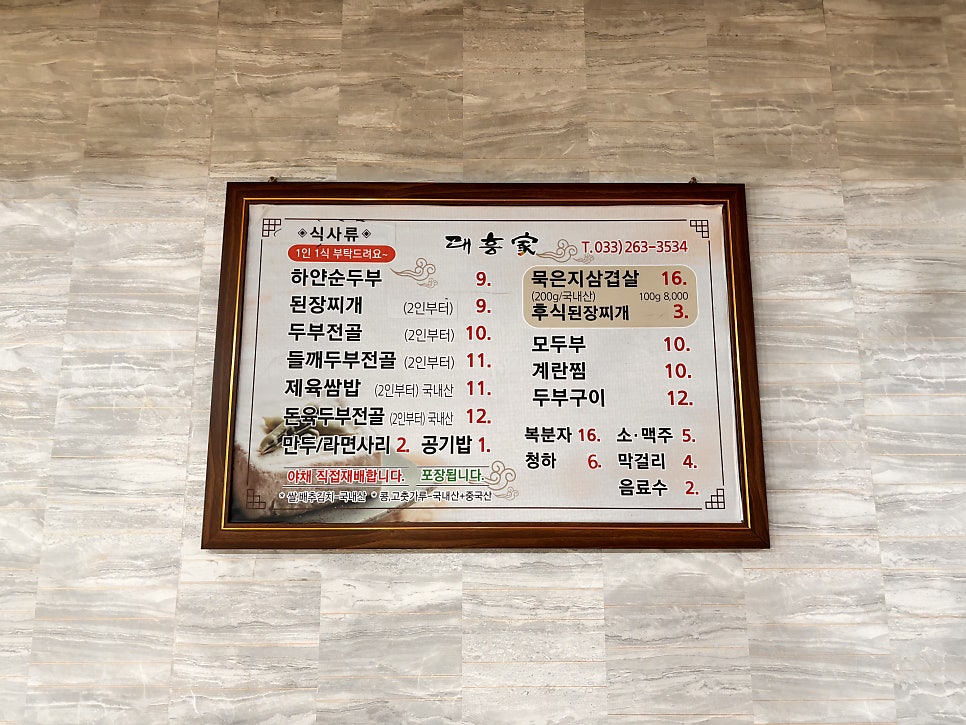 ◈식사류◈
1인 1식 부탁드려요~
하얀순두부 9.
된장찌개 (2인부터) 9.
두부전골 (2인부터) 10.
들깨두부전골 (2인부터) 11.
제육쌈밥 (2인부터) 국내산 11.
돈육두부전골 (2인부터) 국내산 12.
만두/라면사리 2. 공기밥 1.
야채 직접재배합니다. 포장됩니다.
* 쌀,배추김치-국내산 * 콩,고춧가루-국내산+중국산
대흥家 T.033)263-3534
묵은지삼겹살 16.
(200g/국내산) 100g 8,000
후식된장찌개 3.
모두부 10.
계란찜 10.
두부구이 12.
복분자 16. 소·맥주 5.
청하 6. 막걸리 4.
음료수 2.